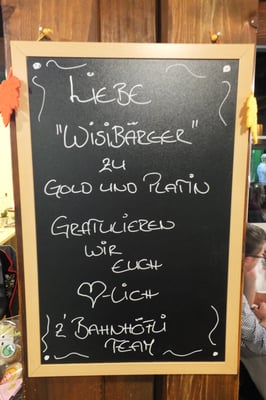 LIEBE
"WISIBÄRGER"
ZU
GOLD UND PLATIN
GRATULIEREN
WIR
EUCH
♡-LICH
z'BAHNHÖFLI
TEAM